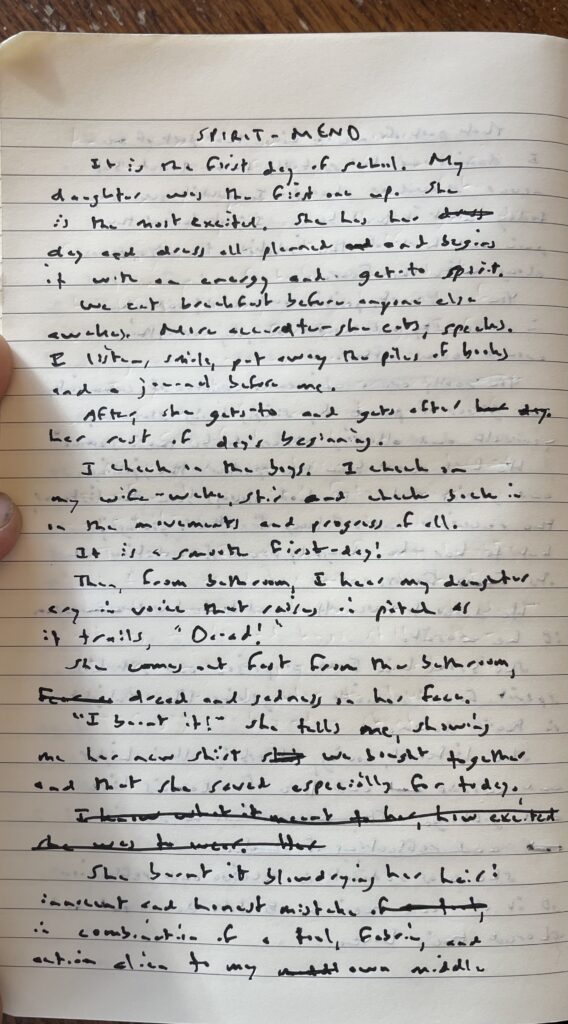 SPIRIT-MEND
It is the first day of school. My
daughter was the first one up. She
is the most excited. She has her dress
day and dress all planned and and begins
it with an energy and get-to spirit.
We eat breakfast before anyone else
awakes. More accurate-she eats, speaks.
I listen, smile, put away the piles of books
and a journal before me.
After, she gets-to and gets after her day.
her rest of day's beginning.
I check on the boys. I check on
my wife-wake, stir and check back in
on the movements and progress of all.
It is a smooth first-day!
Then, from bathroom, I hear my daughter
cry in voice that raises in pitch as
it trails, "Ooad!"
She comes out fast from the bathroom,
dread and sadness on her face.
"I burnt it!" she tells me, showing
me her new shirt we bought together
and that she saved especially for today.
I know what it meant to her, how excited
she was to wear. Her
She burnt it blowdrying her hair:
innocent and honest mistake of a tool,
in combination of a tool, fabric, and
action alien to my own middle